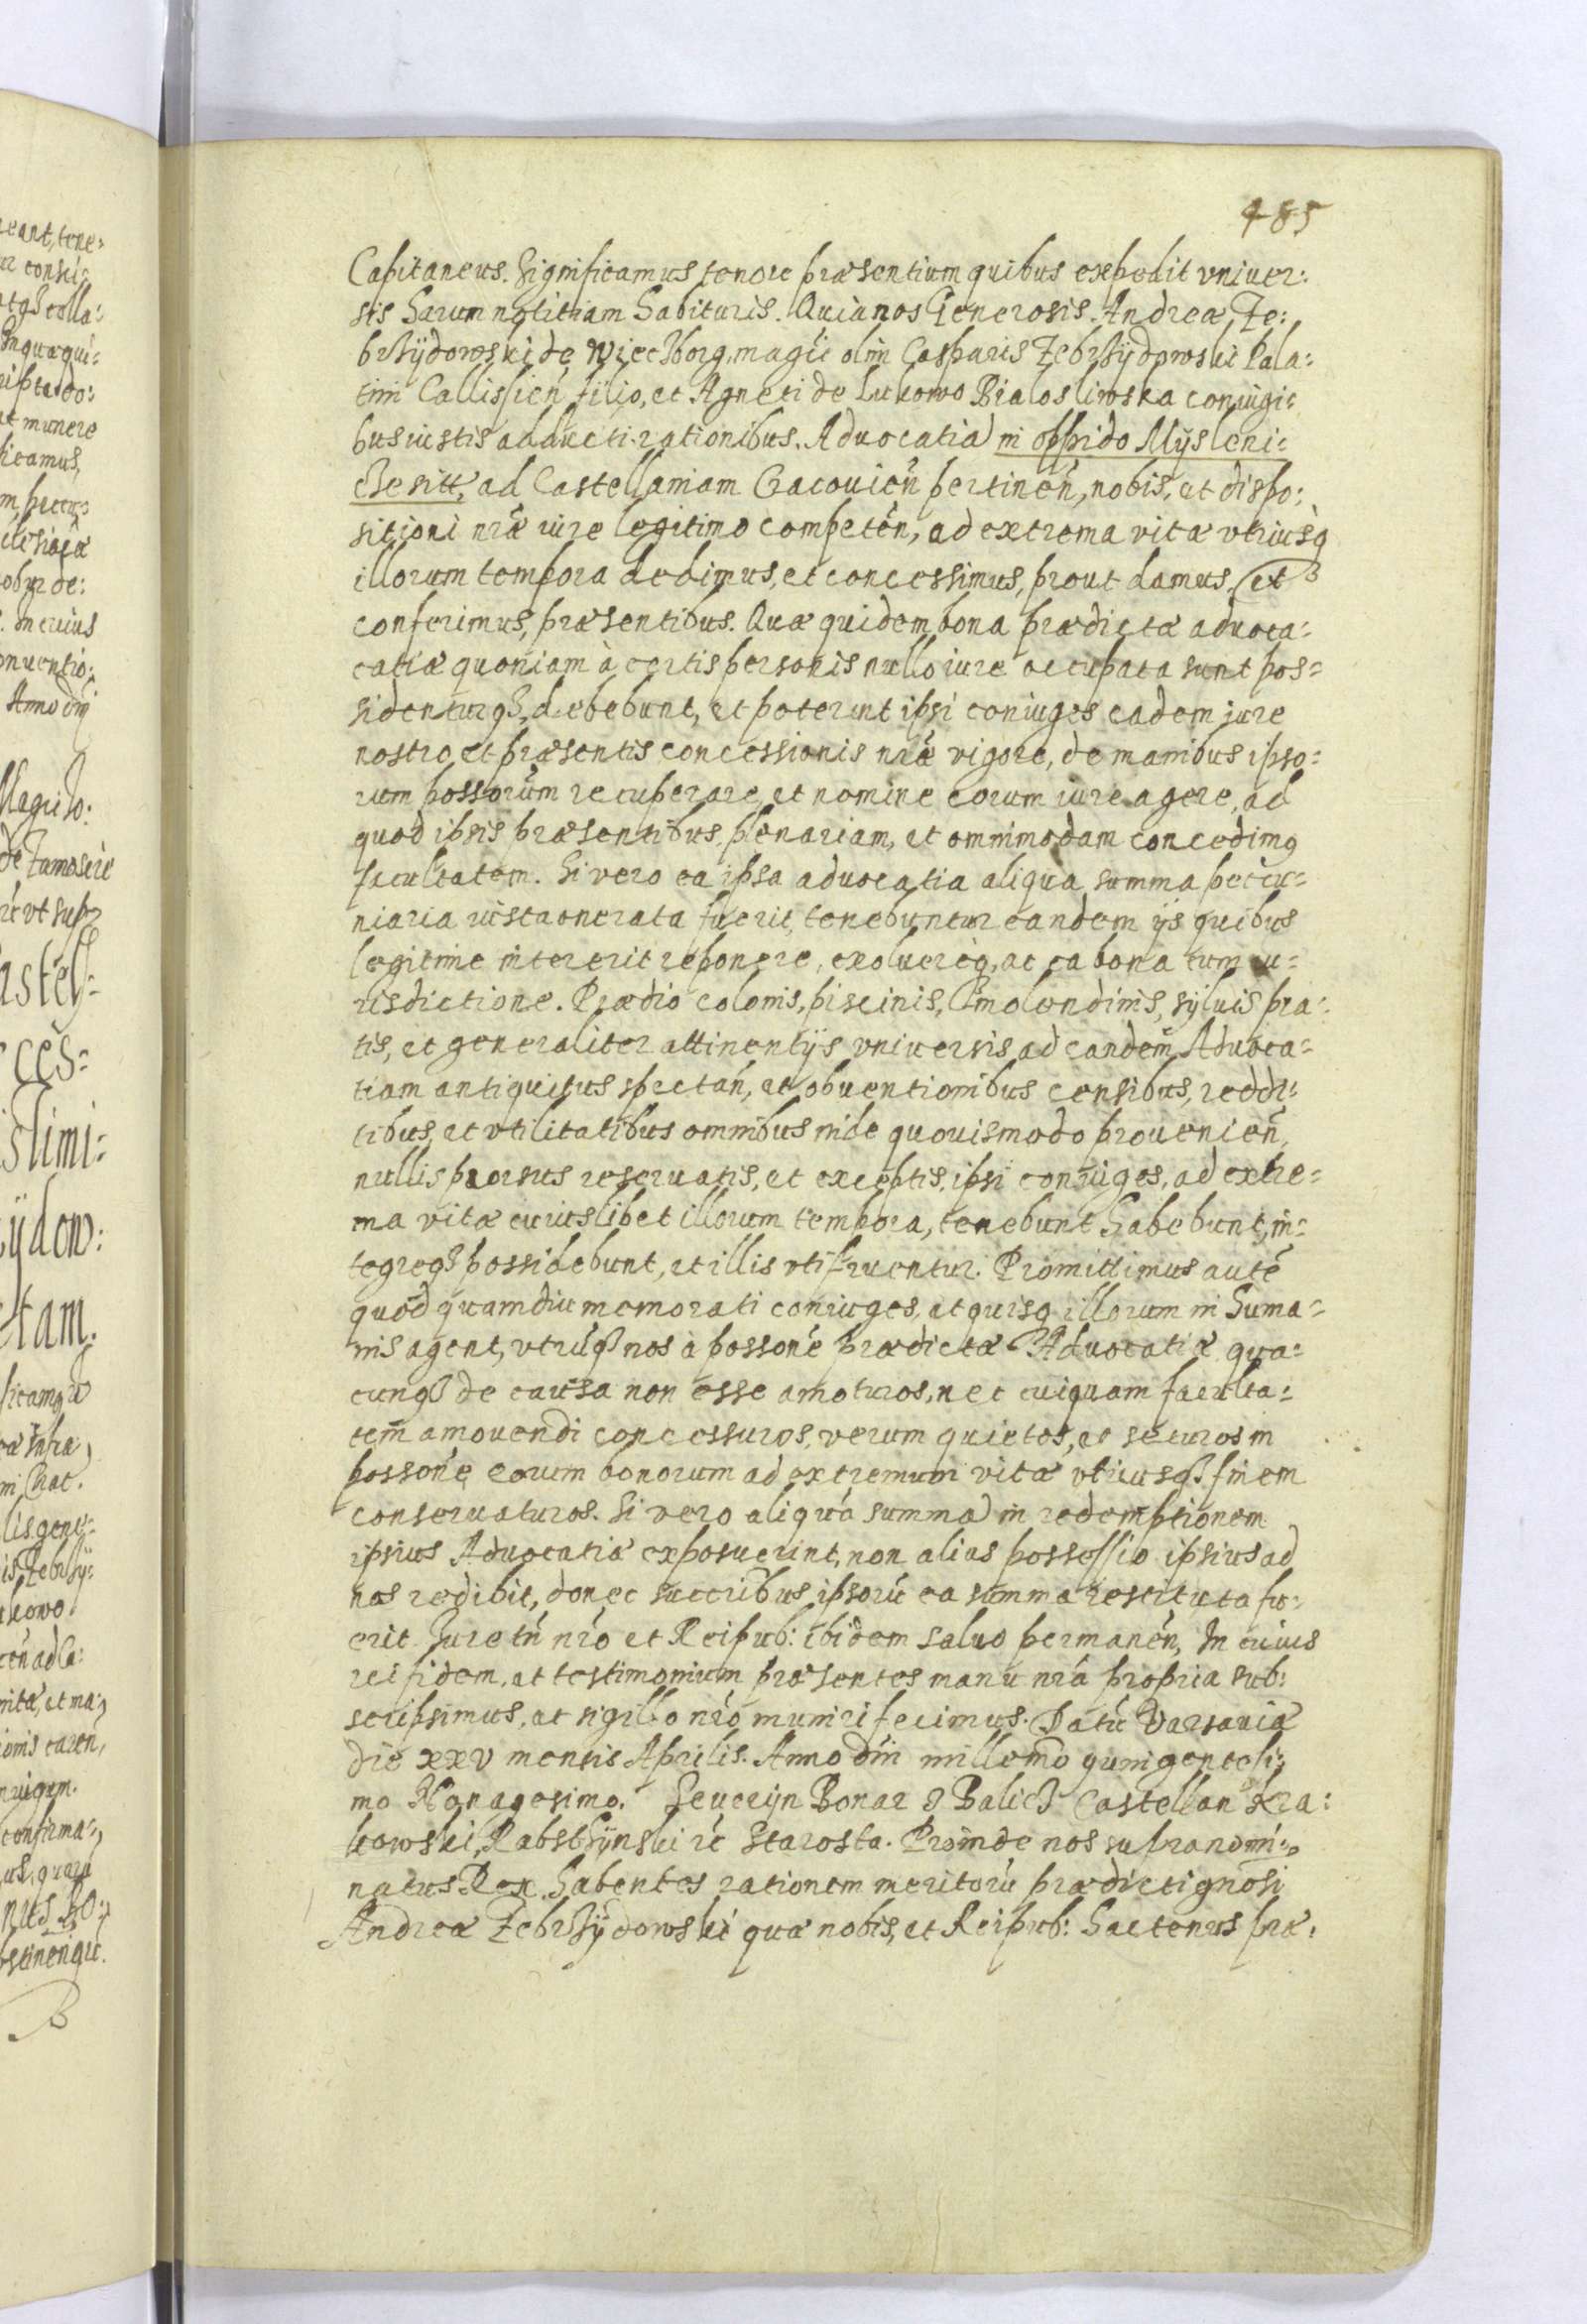 485
Capitaneus. Significamus tenore præsentium quibus expedit vniuer:
sis harum notitiam habituris. Quia nos Generosis Andreæ Ze:
brzÿdowski de Wieczborg, magci olim Casparis Zebrzÿdowski Pala:
tini Callissień filio, et Agneti de Lukowo Bialosliwska coniugi:
bus iustis adducti rationibus. Aduocatiā in oppido Mÿsleni:
cze sitt, ad Castellaniam Cracouień pertineń, nobis, et dispo:
sitioni nrǣ iure legitimo competeń, ad extrema vitæ vtriusq̀
illorum tempora dedimus, et concessimus, prout damus, et
conferimus, præsentibus. Quæ quidem bona prædictæ aduoca:
catiæ quoniam à certis personis nullo iure occupata sunt pos=
sidenturq3, debebunt, et poterunt ipsi coniuges eadem iure
nostro et præsentis concessionis nrǣ vigore, de manibus ipso:
rum possorūm recuperare, et nomine eorum iure agere, ad
quod ipsis præsentibus, plenariam, et omnimodam concedimq
facultatem. Si vero ea ipsa aduocatia aliqua summa pecu=
niaria iusta onerata fuerit, tenebuntur eandem ÿs quibus
legitime intererit reponere, exoluereq̀, ac ea bona cum iu=
risdictione. Prædio colonis, piscinis, molendinis, sÿluis pra:
tis, et generaliter attinentÿs vniuersis ad eandem̄ Aduoca=
tiam antiquitus spectań, et obuentionibus censibus, reddi:
tibus, et vtilitatibus omnibus inde quouismodo prouenień,
nullis prorsus reseruatis, et exceptis, ipsi coniuges, ad extre=
ma vitæ cuiuslibet illorum tempora, tenebunt habebunt, in=
tegreq3 possidebunt, et illis vtifruentur. Promittimus autē
quod quamdiu memorati coniuges, et quisq illorum in huma=
nis agent, vtrūq3 nos à possonē prædictæ Aduocatiæ qua=
cunq3 de causa non esse amoturos, nec cuiquam faculta=
tem̄ amouendi concessuros, verum quietos, ac securos in
possonē eorum bonorum ad extremum vitæ vtriusq3 finem
conseruaturos. Si vero aliquā summā in redemptionem
ipsius Aduocatiæ exposuerint, non alias possessio ipsius ad
nos redibit, donec succribus ipsorū ea summa restituta fu:
erit. Jure tń nrō et Reipub: ibidem saluo permanēn, In cuius
rei fidem, et testimonium præsentes manu nrā propria sub:
scripsimus, et sigillo nrō muniri fecimus. Datū Varsauiæ
die xxv mensis Aprilis. Anno dńi millemō quingentesi:
mo Nonagesimo. Seuerÿn Bonar z Balicz Castellan kra:
kowski, Rabsthÿnski rć Starosta. Proinde nos supranomi:
natus Rex, habentes rationem meritorū prædicti gnōsi
Andreæ Zebrzÿdowski quæ nobis, et Reipub: hactenus præ: